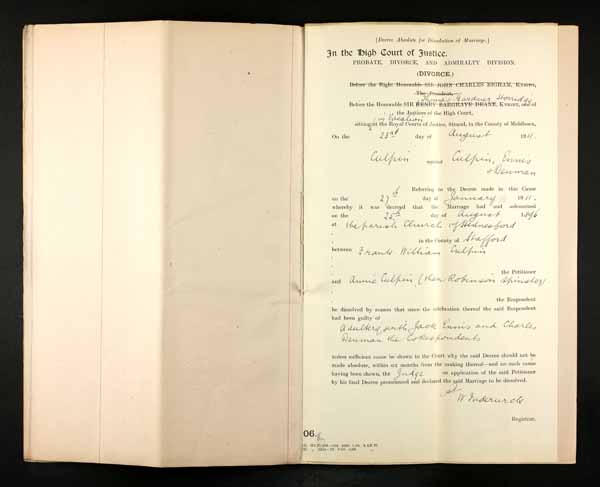 [Decree Absolute for Dissolution of Marriage.]
In the High Court of Justice.
PROBATE, DIVORCE, AND ADMIRALTY DIVISION.
(DIVORCE.)
Before the Right Honourable SIR JOHN CHARLES BIGHAM, KNIGHT,
The President,
Thomas Gardner Horridge
Before the Honourable SIR HENRY BARGRAVE DEANE, KNIGHT, one of
the Justices of the High Court,
in Vacation
sitting at the Royal Courts of Justice, Strand, in the County of Middlesex,
On the 23rd day of August 1911.
Culpin against Culpin, Ennis
& Denman
Referring to the Decree made in this Cause
on the 27th day of January 1911.
whereby it was decreed that the Marriage had and solemnized
on the 25th day of August 1896
at the parish Church of Hednesford
in the County of Stafford
between Frank William Culpin
the Petitioner
and Annie Culpin (then Robinson Spinster)
the Respondent
be dissolved by reason that since the celebration thereof the said Respondent
had been guilty of
adultery with Jack Ennis and Charles
Denman the Corespondents
unless sufficient cause be shown to the Court why the said Decree should not be
made absolute, within six months from the making thereof—and no such cause
having been shown, the Judge on application of the said Petitioner
by his final Decree pronounced and declared the said Marriage to be dissolved.
Registrar.
06